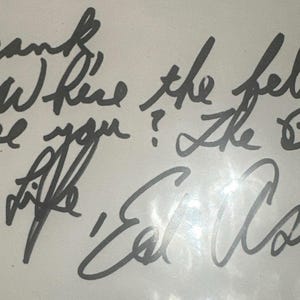 ank,
Where the hel
e you? The
Life
, Ed As